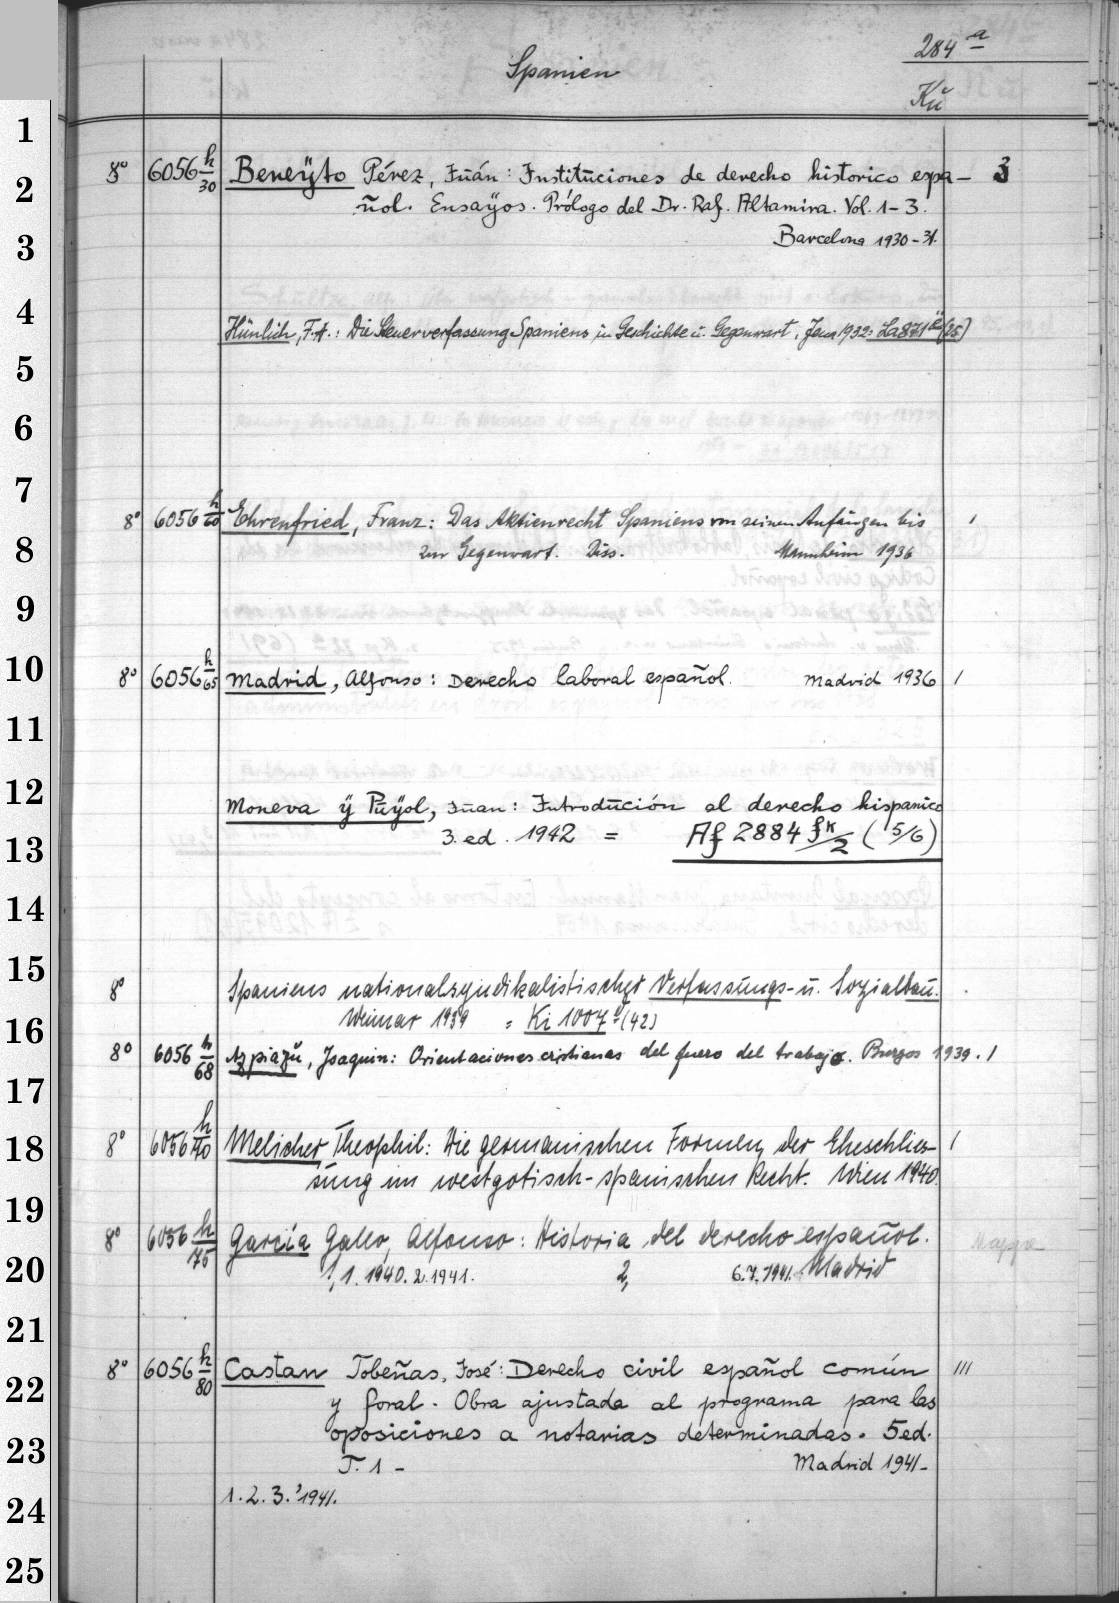 284 a
Spanien
Kü
1
8° 6056 h/30 Beneÿto Pérez, Jŭan: Institŭciones de derecho historico espa- 3
2
ñol. Ensaÿos. Prólogo del Dr. Raf. Altamira. Vol. 1-3.
3
Barcelona 1930-31.
4
Hünlich, F.A.: Die Steuerverfassung Spaniens in Geschichte u. Gegenwart, Jena 1932: La 871 (25)
5
6
7
8° 6056 h/60 Ehrenfried, Franz: Das Aktienrecht Spaniens von seinen Anfängen bis 1
8
zur Gegenwart. Diss. Mannheim 1936
9
10
8° 6056 h/65 Madrid, Alfonso: Derecho laboral español. Madrid 1936 1
11
12
Moneva ÿ Pŭÿol, Jŭan: Introdŭción al derecho hispanico
13
3. ed. 1942 = Af 2884 fk/2 (5/6)
14
15
8° Spaniens nationalsyndikalistischer Verfassŭngs- ŭ. Sozialbaŭ.
16
Weimar 1939 = Ki 1007 (42)
8° 6056 h/68 Azpiazŭ, Joaquin: Orientaciones cristianas del fuero del trabajo. Burgos 1939. 1
17
18
8° 6056 h/70 Melicher Theophil: Die germanischen Formen der Eheschlies- 1
sŭng im westgotisch-spanischen Recht. Wien 1940.
19
8° 6056 h/75 García Gallo, Alfonso: Historia del derecho español.
20
1, 1. 1940. 2. 1941. 2, 6.7.1941. Madrid
21
8° 6056 h/80 Castan Tobeñas, José: Derecho civil español común 111
22
y foral. Obra ajustada al programa para las
23
oposiciones a notarias determinadas. 5 ed.
T. 1 - Madrid 1941-
24
1. 2. 3. 1941.
25